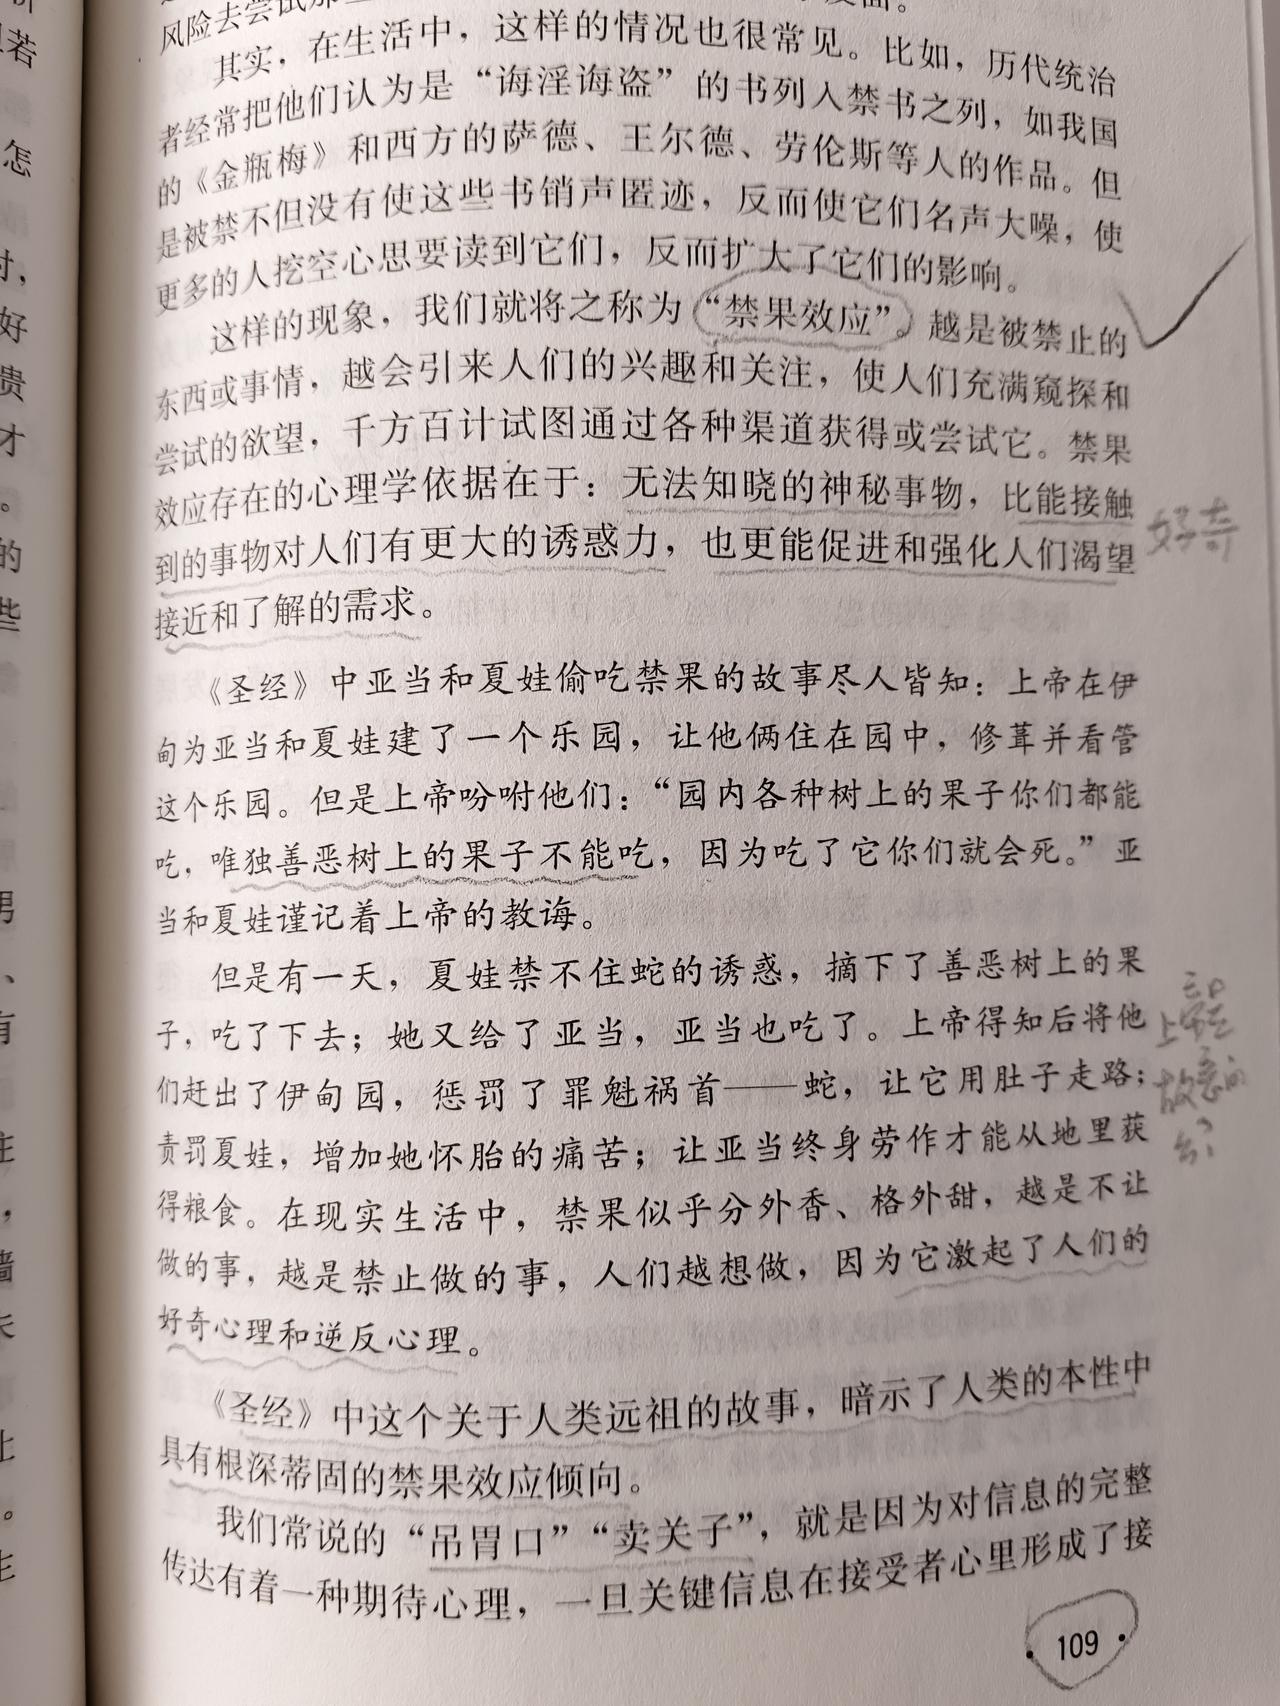 风险去尝试那
其实，在生活中，这样的情况也很常见。比如，历代统治
者经常把他们认为是“诲淫诲盗”的书列入禁书之列，如我国
的《金瓶梅》和西方的萨德、王尔德、劳伦斯等人的作品。但
是被禁不但没有使这些书销声匿迹，反而使它们名声大噪，使
更多的人挖空心思要读到它们，反而扩大了它们的影响。
这样的现象，我们就将之称为“禁果效应”。越是被禁止的
东西或事情，越会引来人们的兴趣和关注，使人们充满窥探和
尝试的欲望，千方百计试图通过各种渠道获得或尝试它。禁果
效应存在的心理学依据在于：无法知晓的神秘事物，比能接触
到的事物对人们有更大的诱惑力，也更能促进和强化人们渴望
接近和了解的需求。
好奇
《圣经》中亚当和夏娃偷吃禁果的故事尽人皆知：上帝在伊
甸为亚当和夏娃建了一个乐园，让他俩住在园中，修葺并看管
这个乐园。但是上帝吩咐他们：“园内各种树上的果子你们都能
吃，唯独善恶树上的果子不能吃，因为吃了它你们就会死。”亚
当和夏娃谨记着上帝的教诲。
但是有一天，夏娃禁不住蛇的诱惑，摘下了善恶树上的果
子，吃了下去；她又给了亚当，亚当也吃了。上帝得知后将他
们赶出了伊甸园，惩罚了罪魁祸首——蛇，让它用肚子走路；
责罚夏娃，增加她怀胎的痛苦；让亚当终身劳作才能从地里获
得粮食。在现实生活中，禁果似乎分外香、格外甜，越是不让
做的事，越是禁止做的事，人们越想做，因为它激起了人们的
好奇心理和逆反心理。
上帝
故意的
《圣经》中这个关于人类远祖的故事，暗示了人类的本性中
具有根深蒂固的禁果效应倾向。
我们常说的“吊胃口”“卖关子”，就是因为对信息的完整
传达有着一种期待心理，一旦关键信息在接受者心里形成了接
109